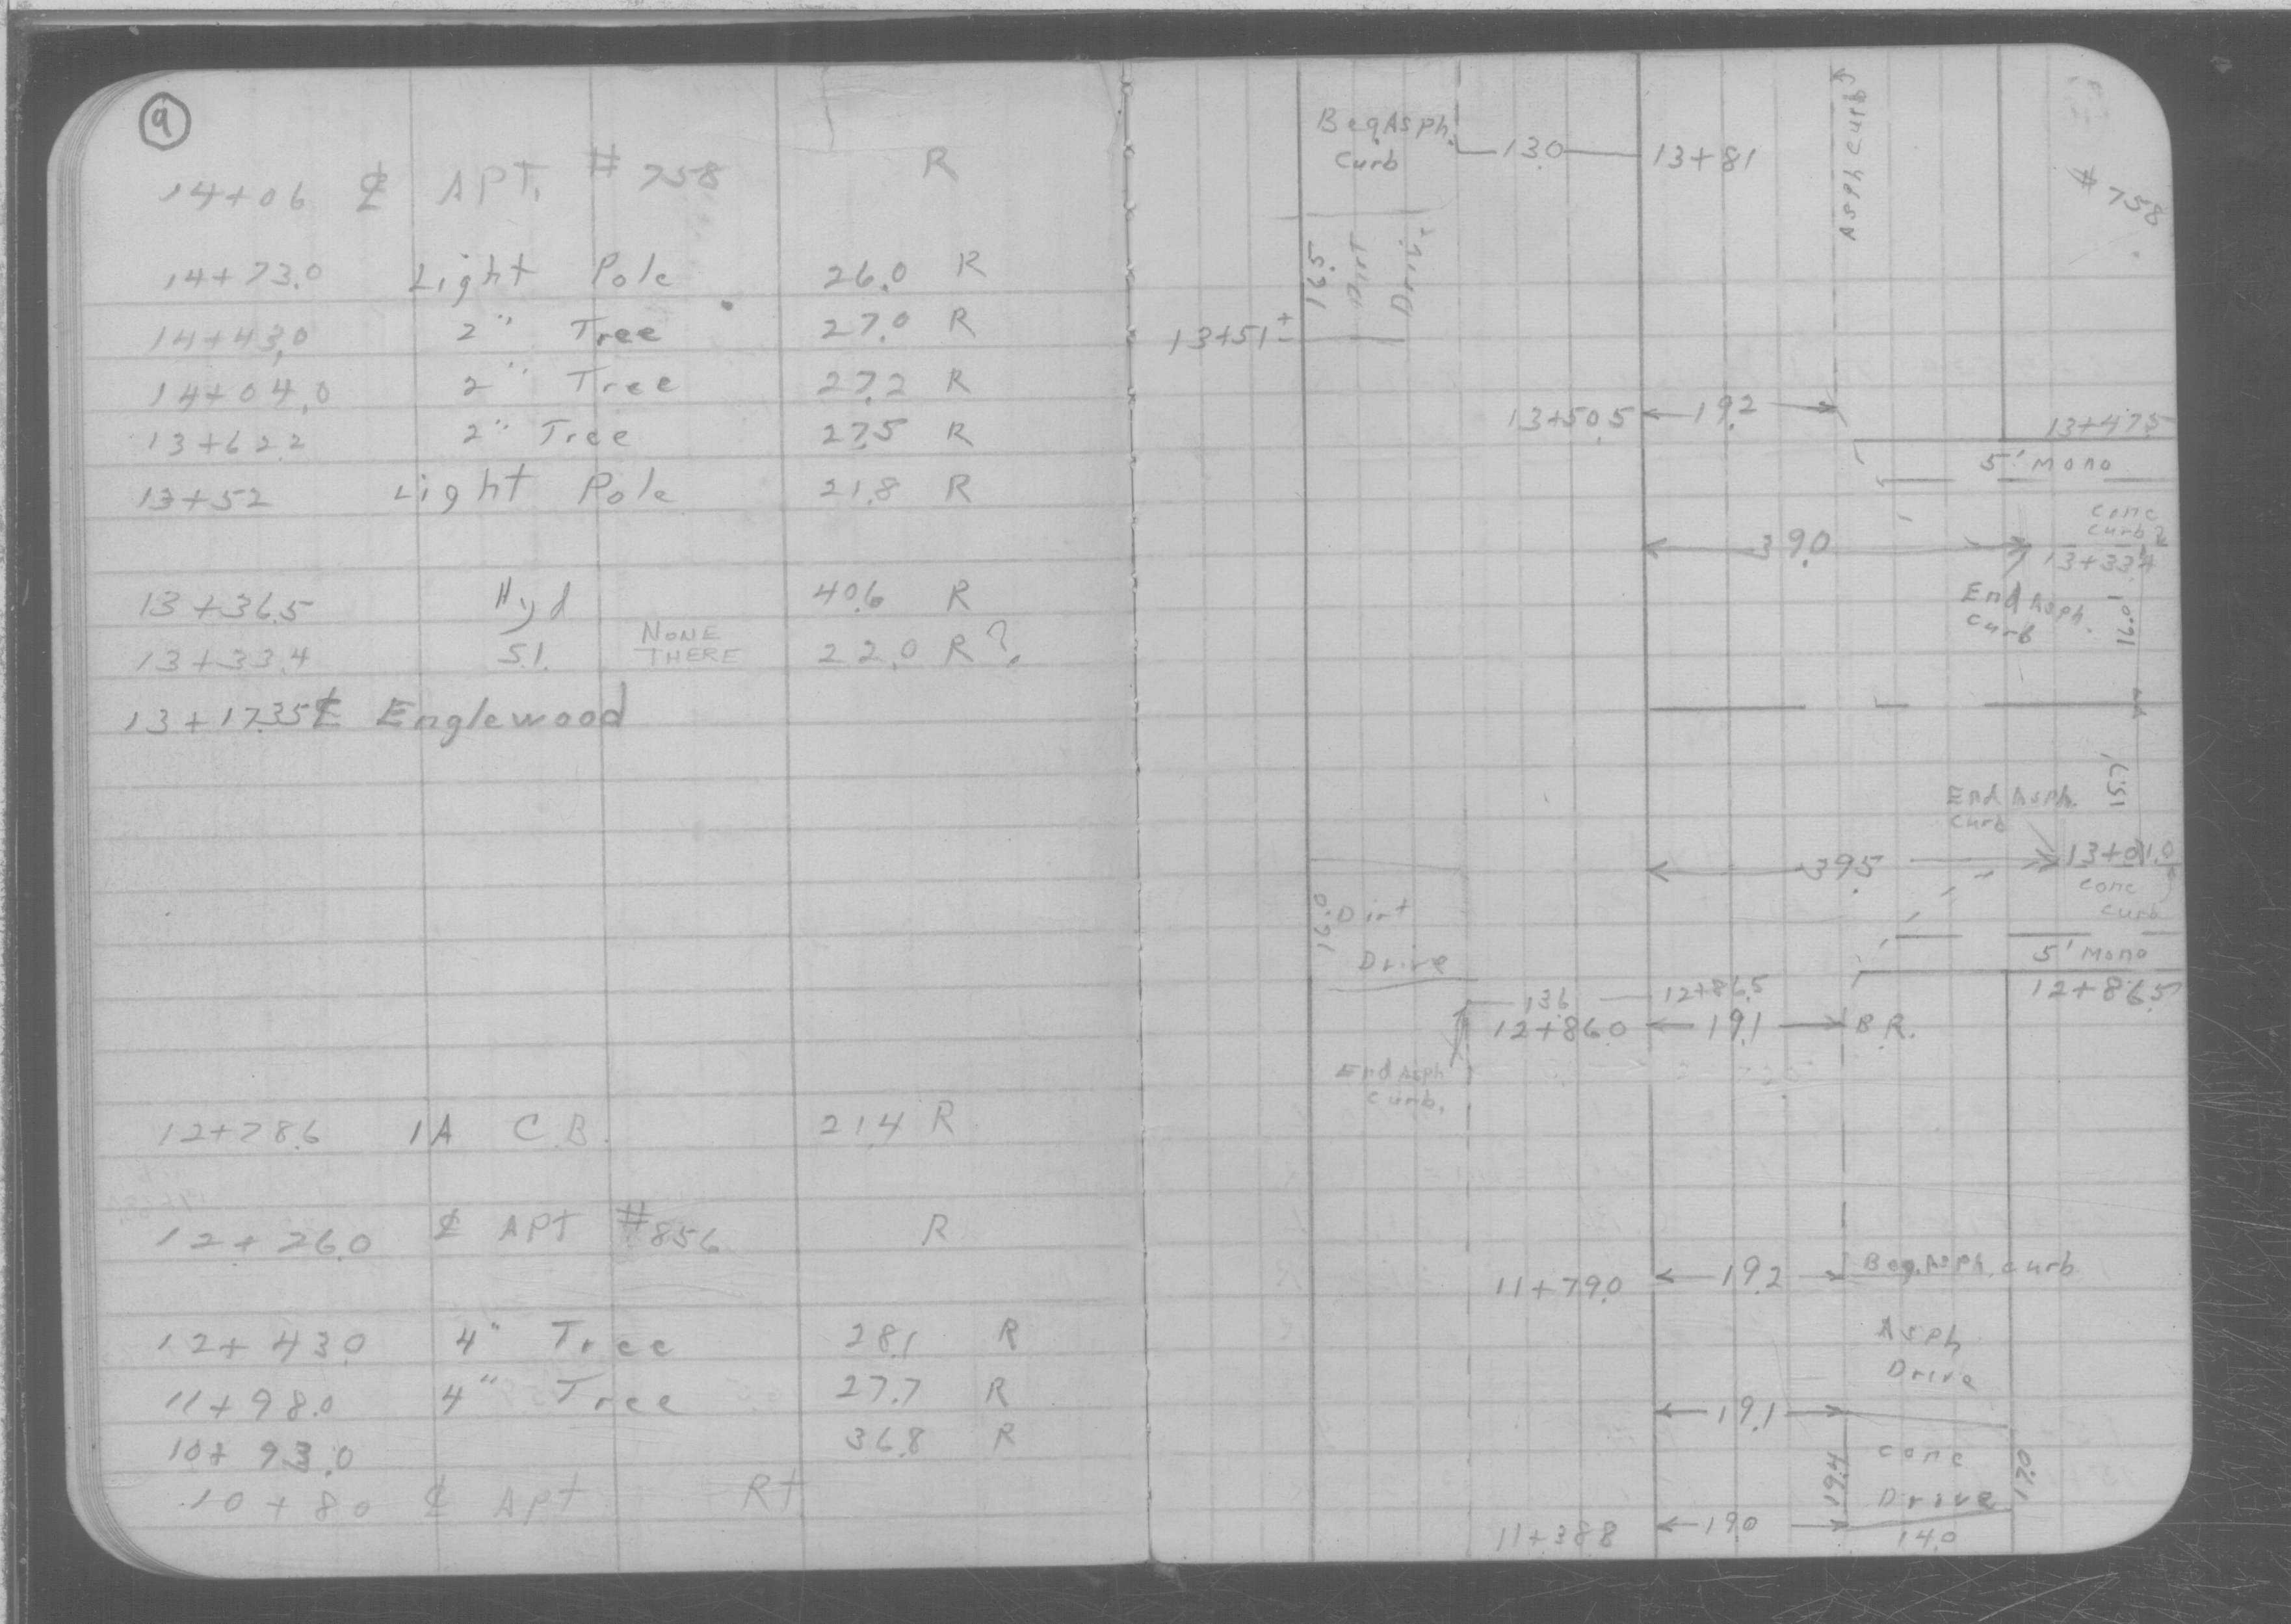 9
14+06 ℄ APT. #758 R
14+73.0 Light Pole 26.0 R
14+43.0 2" Tree 27.0 R
14+04.0 2" Tree 27.2 R
13+62.2 2" Tree 27.5 R
13+52 Light Pole 21.8 R
13+36.5 Hyd 40.6 R
13+33.4 S.I. NONE THERE 22.0 R?
13+17.35 ℄ Englewood
12+78.6 1A C.B. 21.4 R
12+26.0 ℄ APT #856 R
12+43.0 4" Tree 28.1 R
11+98.0 4" Tree 27.7 R
10+93.0 36.8 R
10+80 ℄ Apt Rt
Beg Asph. Curb 13.0 13+81
Asph Curb
#758
16.5 Dirt Drive
13+51±
13+50.5 19.2
13+47.5
5' Mono
Conc Curb
39.0 13+33.4
End Asph. Curb
16.0
15.7
End Asph. Curb
39.5 13+01.0
Conc Curb
16.0 Dirt Drive
5' Mono
13.6 12+86.5
12+86.5
12+86.0 19.1 B.R.
End Asph Curb.
11+79.0 19.2 Beg. Asph. Curb
Asph Drive
19.1
19.4 Conc Drive 17.0
11+38.8 19.0
14.0